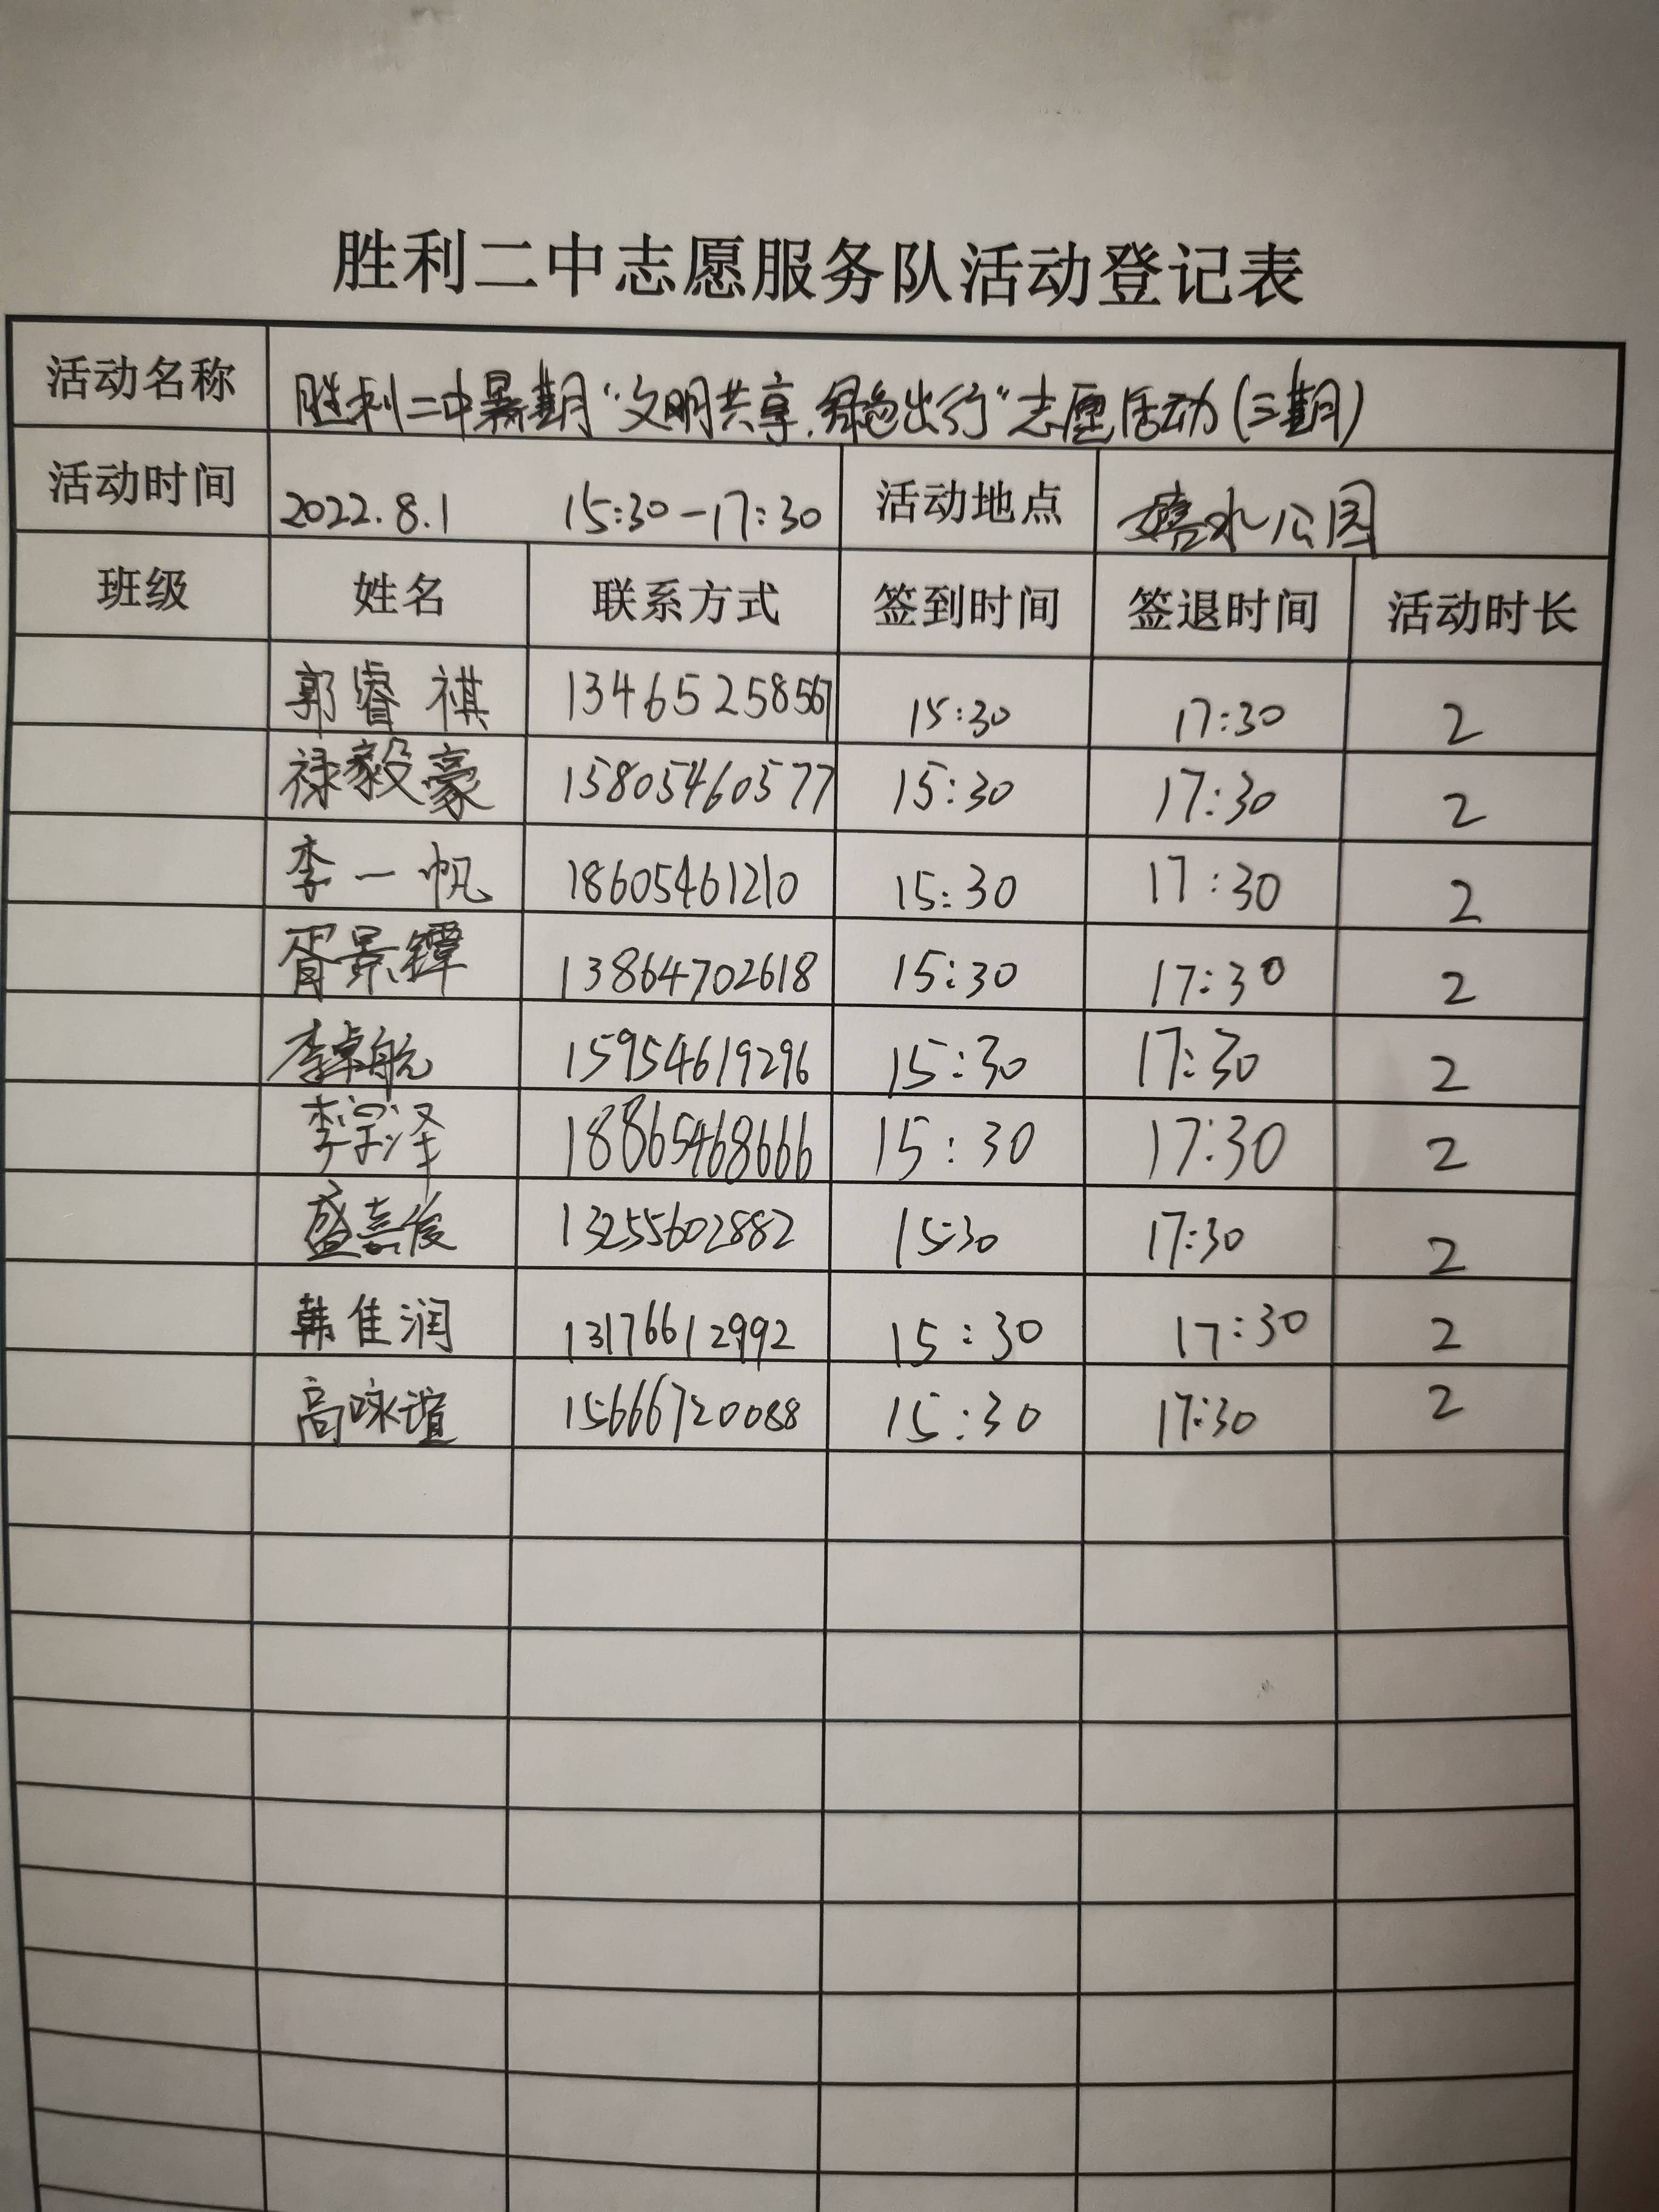 胜利二中志愿服务队活动登记表
活动名称 胜利二中暑期“文明共享,绿色出行”志愿活动(三期)
活动时间 2022.8.1 15:30-17:30 活动地点 嬉水公园
班级 姓名 联系方式 签到时间 签退时间 活动时长
郭睿祺 13465258567 15:30 17:30 2
禄毅豪 15805460577 15:30 17:30 2
李一帆 18605461210 15:30 17:30 2
胥景镡 13864702618 15:30 17:30 2
李卓航 15954619296 15:30 17:30 2
李宗泽 18865468666 15:30 17:30 2
盛嘉俊 13255602882 15:30 17:30 2
韩佳润 13176612992 15:30 17:30 2
高咏谊 15666720088 15:30 17:30 2